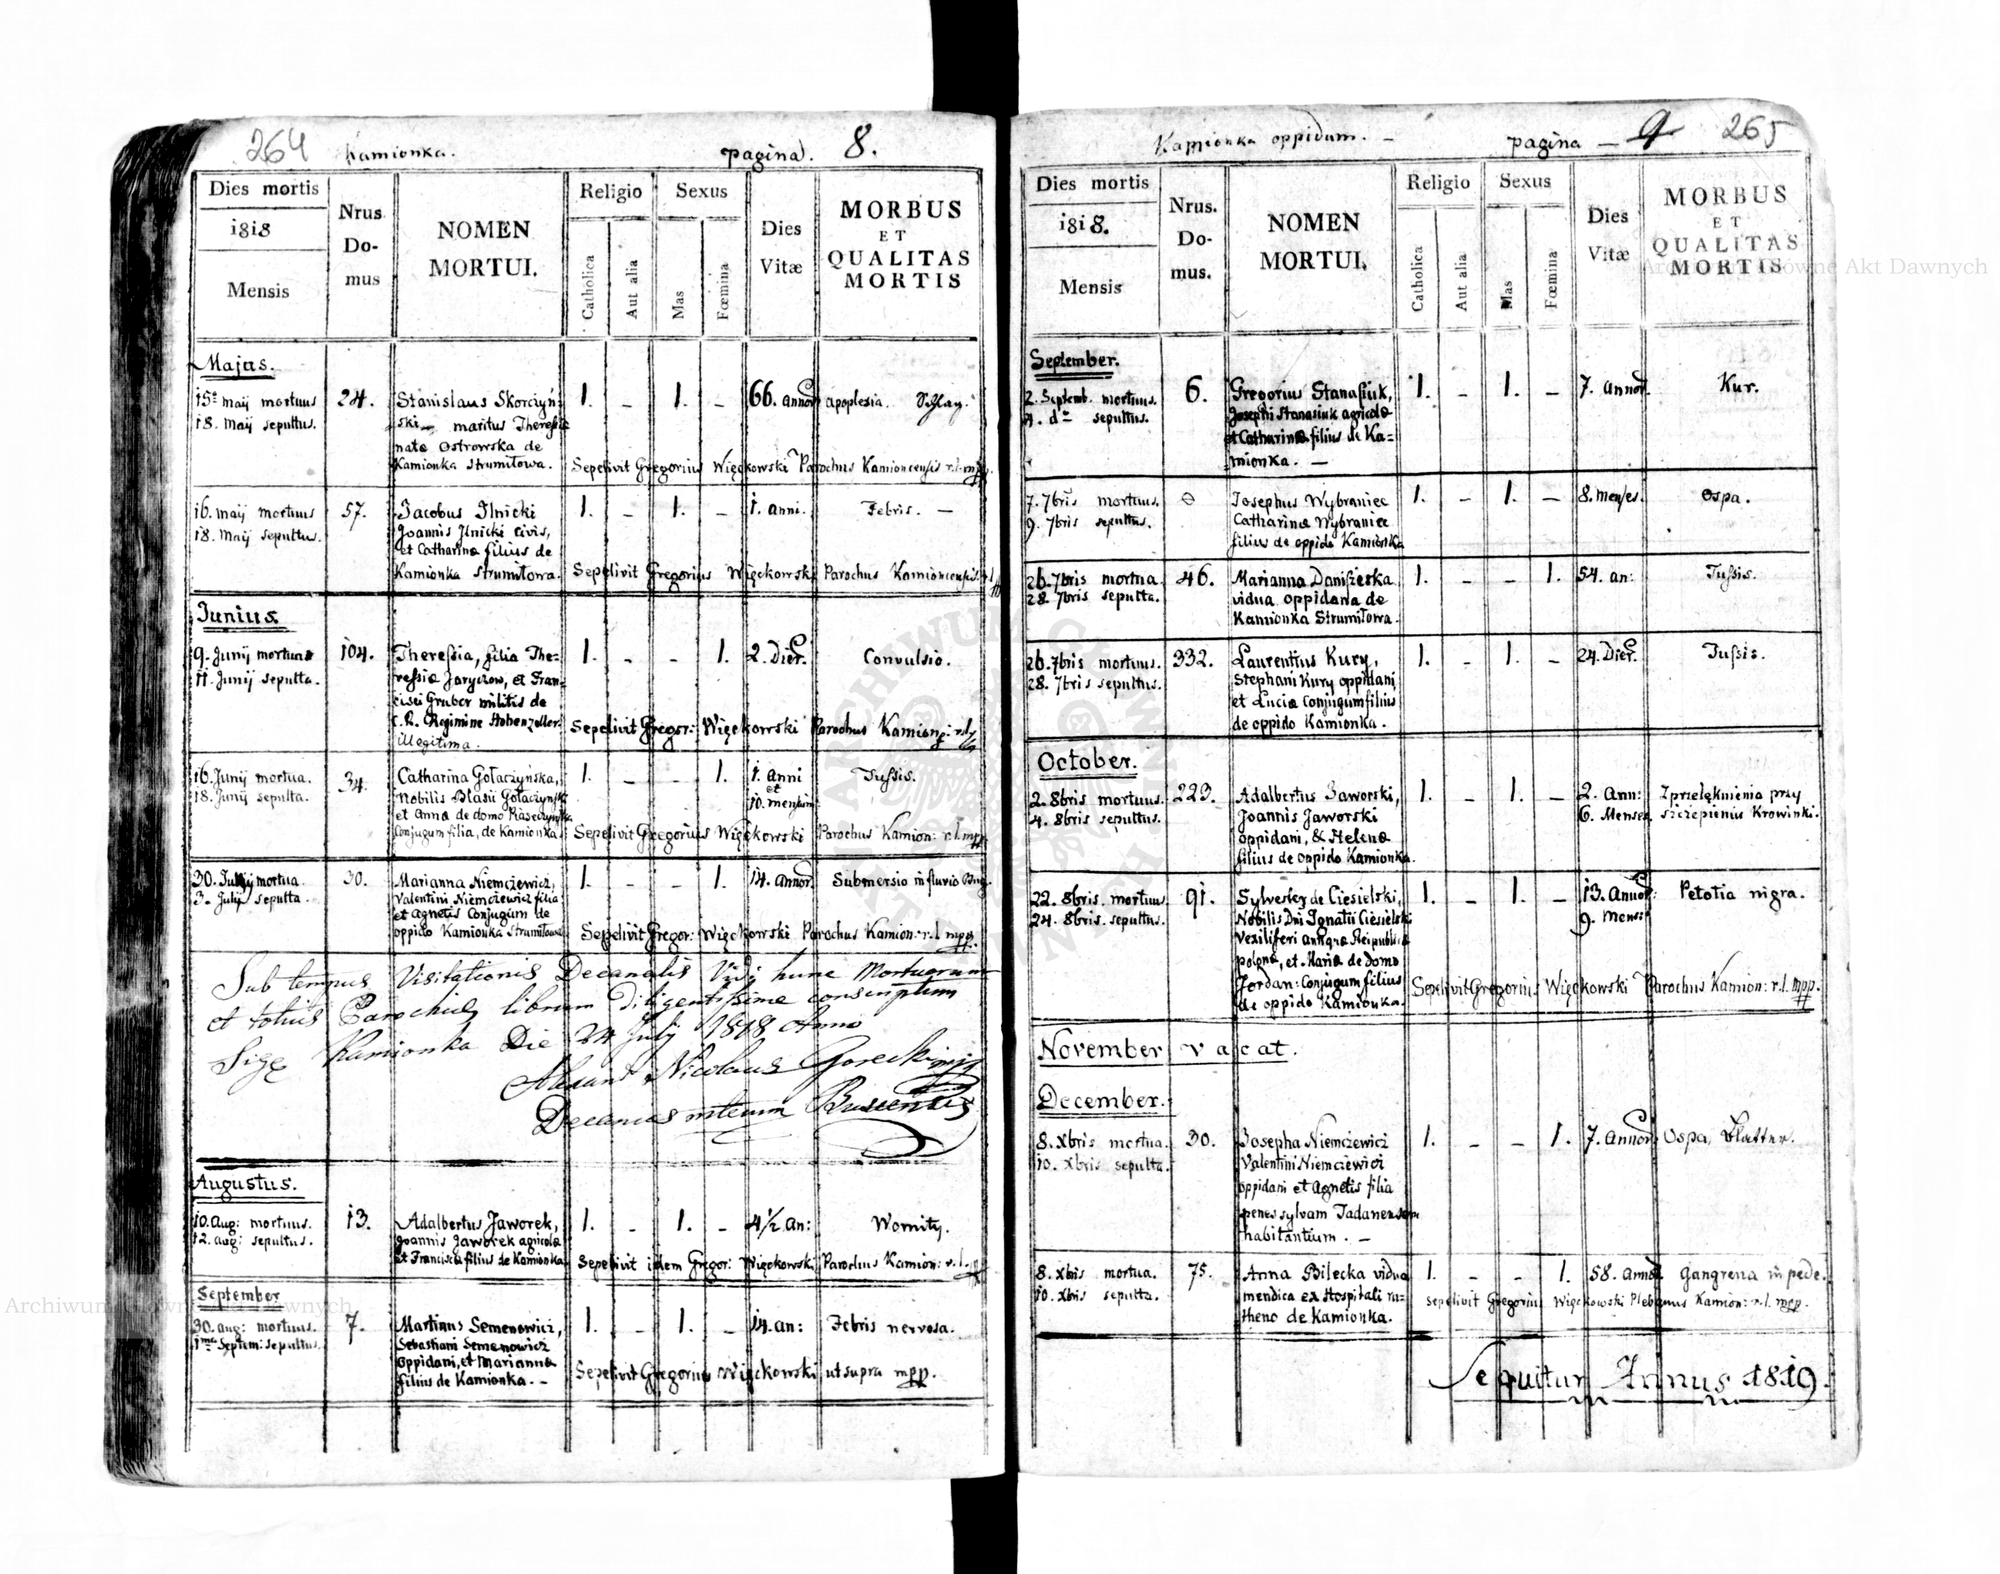 264 Kamionka. pagina. 8.
Dies mortis
1818
Mensis
Nrus
Do-
mus
NOMEN
MORTUI.
Religio
Catholica
Aut alia
Sexus
Mas
Fœmina
Dies
Vitæ
MORBUS
ET
QUALITAS
MORTIS
Majus.
15ª maij mortuus 24. Stanislaus Skorczyń- 1. - 1. - 66. annor apoplexia.
18. Maij sepultus. ski maritus Theresiæ
natæ Ostrowska de
Kamionka Strumiłowa. Sepelivit Gregorius Więckowski Parochus Kamioncensis r.l. mpp.
16. maij mortuus 57. Jacobus Ilnicki 1. - 1. - 1. anni. Febris. -
18. Maij sepultus. Joannis Ilnicki civis,
et Catharinæ filius de
Kamionka Strumiłowa. Sepelivit Gregorius Więckowski Parochus Kamioncensis r.l.
Junius
9. Junij mortua 104. Theressia, filia The- 1. - - 1. 2. Dier. Convulsio.
11. Junij sepulta. ressiæ Jaryczow, et Fran-
cisci Gruber militis de
C.R. Regimine Hohenzoller.
illegitima. Sepelivit Gregor: Więckowski Parochus Kamion: r.l.
16. Junij mortua. 34. Catharina Gołaczyńska, 1. - - 1. 1. anni Tussis.
18. Junij sepulta. Nobilis Blasii Gołaczyńsk et
et Anna de domo 10. mensium
Conjugum filia, de Kamionka. Sepelivit Gregorius Więckowski Parochus Kamion: r.l. mpp
30. mortua. 30. Marianna Niemczewicz, 1. - - 1. 14. annor. Submersio in fluvio Bug.
3. Julij sepulta. Valentini Niemczewicz filia
et Agnetis Conjugum de
oppido Kamionka Strumiłowa Sepelivit Gregor: Więckowski Parochus Kamion: r.l. mpp.
Sub tempus Visitationis Decanalis Vidi hunc Mortuorum
et totius Parochiæ librum Diligentissime conscriptum
Sigę Kamionka Die 24 July 1818 Anno
Nicolaus Gorecki mpp
Decanus interim Buscensis
Augustus.
10. Aug: mortuus. 13. Adalbertus Jaworek, 1. - 1. - 4½ an: Womity.
12. aug: sepultus. Joannis Jaworek agricolæ
et Franciscæ filius de Kamionka Sepelivit idem Gregor: Więckowski Parochus Kamion: r.l.
September
30. aug: mortuus. 7. Martinus Semenowicz, 1. - 1. - 14. an: Febris nervosa.
1ma Septem: sepultus. Sebastiani Semenowicz
oppidani, et Mariannæ
filius de Kamionka. - Sepelivit Gregorius Więckowski ut supra mpp.
Kamionka oppidum. - pagina - 9 265
Dies mortis
1818.
Mensis
Nrus.
Do-
mus.
NOMEN
MORTUI.
Religio
Catholica
Aut alia
Sexus
Mas
Fœmina
Dies
Vitæ
MORBUS
ET
QUALITAS
MORTIS
September.
2. Septemb. mortuus. 6. Gregorius Stanasiuk, 1. - 1. - 7. annor. Kur.
4. do sepultus. Josephi Stanasiuk agricolæ
et Catharinæ filius de Ka=
mionka. -
7. 7bris mortuus. Josephus Wybraniec 1. - 1. - 8. menses. Ospa.
9. 7bris sepultus. Catharinæ Wybraniec
filius de oppido Kamionka
26. 7bris mortua. 46. Marianna Daniszeska 1. - - 1. 54. an: Tussis.
28. 7bris sepulta. vidua oppidana de
Kamionka Strumiłowa.
26. 7bris mortuus. 332. Laurentius Kury, 1. - 1. - 24. Dier. Tussis.
28. 7bris sepultus. Stephani Kury oppidani
et Luciæ Conjugum filius
de oppido Kamionka.
October.
2. 8bris mortuus. 223. Adalbertus Jaworski, 1. - 1. - 2. Ann: Zprzelęknienia przy
4. 8bris sepultus. Joannis Jaworski 6. Menses szczepieniu Krowinki.
oppidani, & Helenæ
filius de oppido Kamionka.
22. 8bris mortuus 91. Sylwester de Ciesielski, 1. - 1. - 13. Annor: Petotia nigra.
24. 8bris. sepultus. Nobilis Dni Ignatii Ciesielski 9. Mens:
Vexiliferi antiqæ Reipublicæ
polonæ, et Maria de domo
Jordan: Conjugum filius
de oppido Kamionka. Sepelivit Gregorius Więckowski Parochus Kamion: r.l. mpp.
November vacat.
December.
8. Xbris mortua. 30. Josepha Niemczewicz 1. - - 1. 7. annor Ospa, Blatter.
10. Xbris sepulta. Valentini Niemczewicz
oppidani et Agnetis filia
penes sylvam
habitantium. -
8. Xbris mortua. 75. Anna Bilecka vidua 1. - - 1. 58. annor. Gangrena in pede.
10. Xbris sepulta. mendica ex Hospitali ru= Sepelivit Gregorius Więckowski Plebanus Kamion: r.l. mpp.
theno de Kamionka.
Sequitur Annus 1819.
Archiwum Główne Akt Dawnych
Archiwum Główne Akt Dawnych